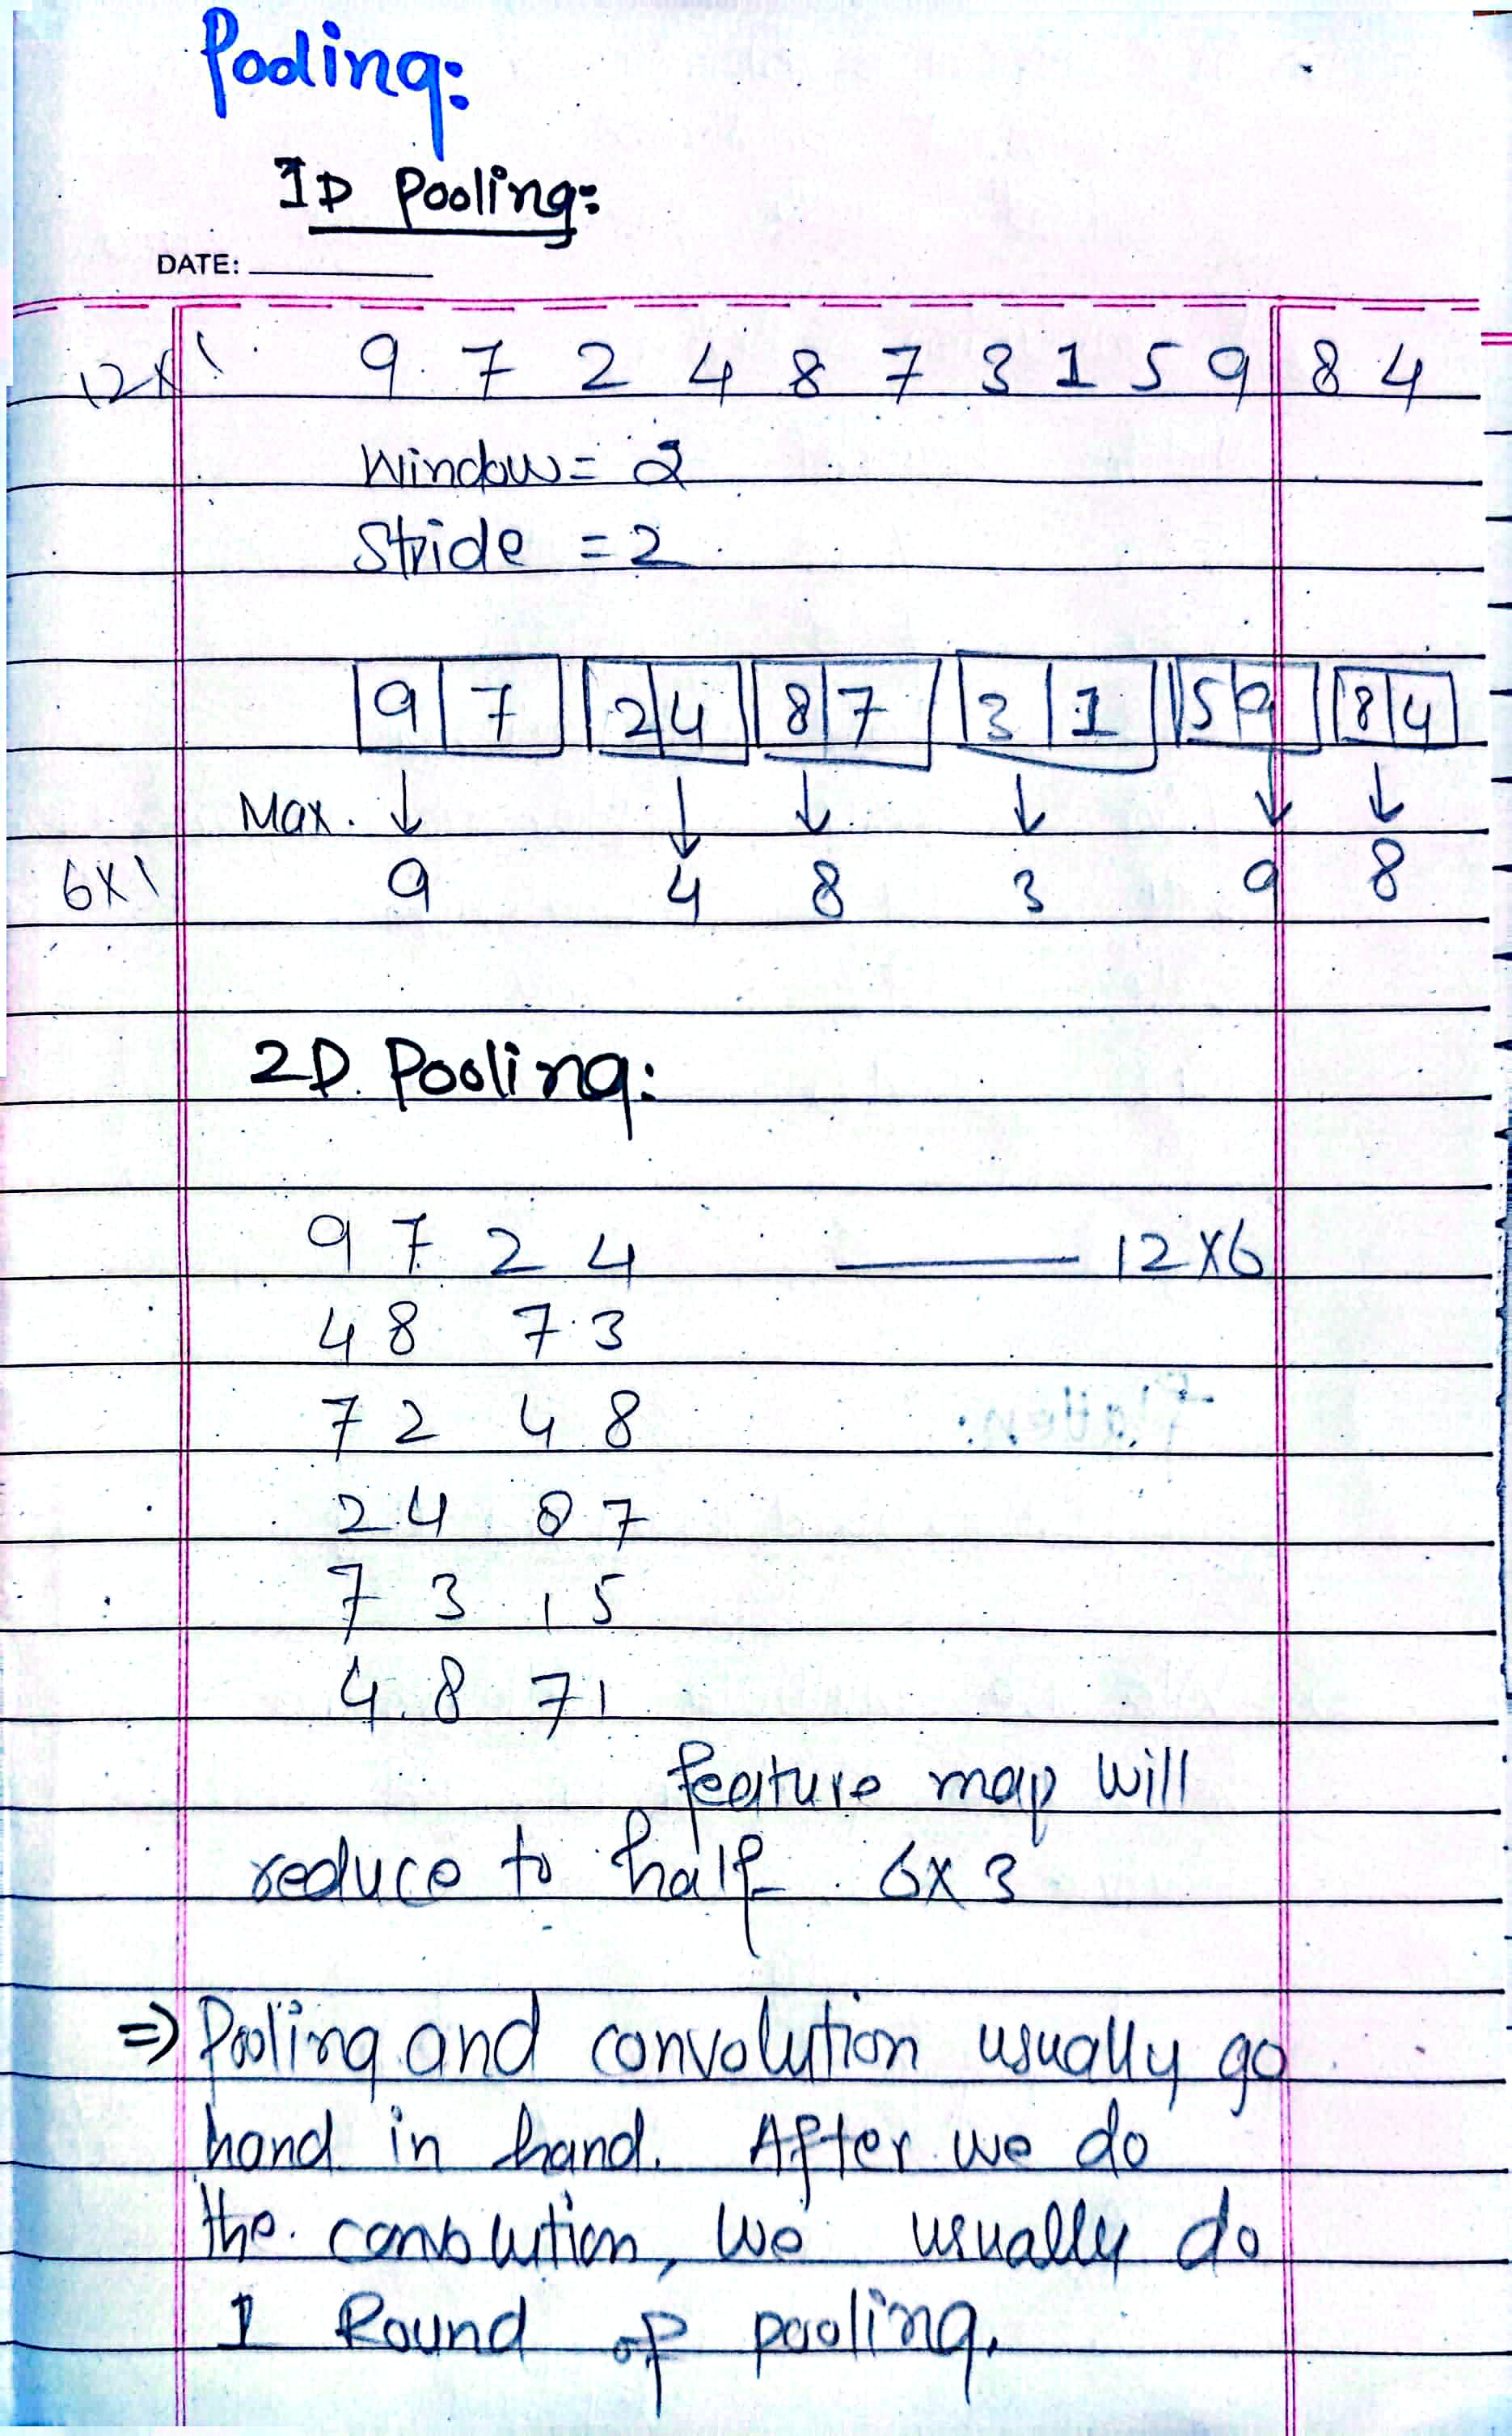 Pooling:
1D Pooling:
DATE:
12x1 9 7 2 4 8 7 3 1 5 9 8 4
Window = 2
Stride = 2
9 7 2 4 8 7 3 1 5 9 8 4
Max.
6x1 9 4 8 3 9 8
2D Pooling:
9 7 2 4 12x6
4 8 7 3
7 2 4 8
2 4 8 7
7 3 1 5
4 8 7 1
feature map will
reduce to half 6x3
=> Pooling and convolution usually go
hand in hand. After we do
the convolution, we usually do
1 Round of pooling.